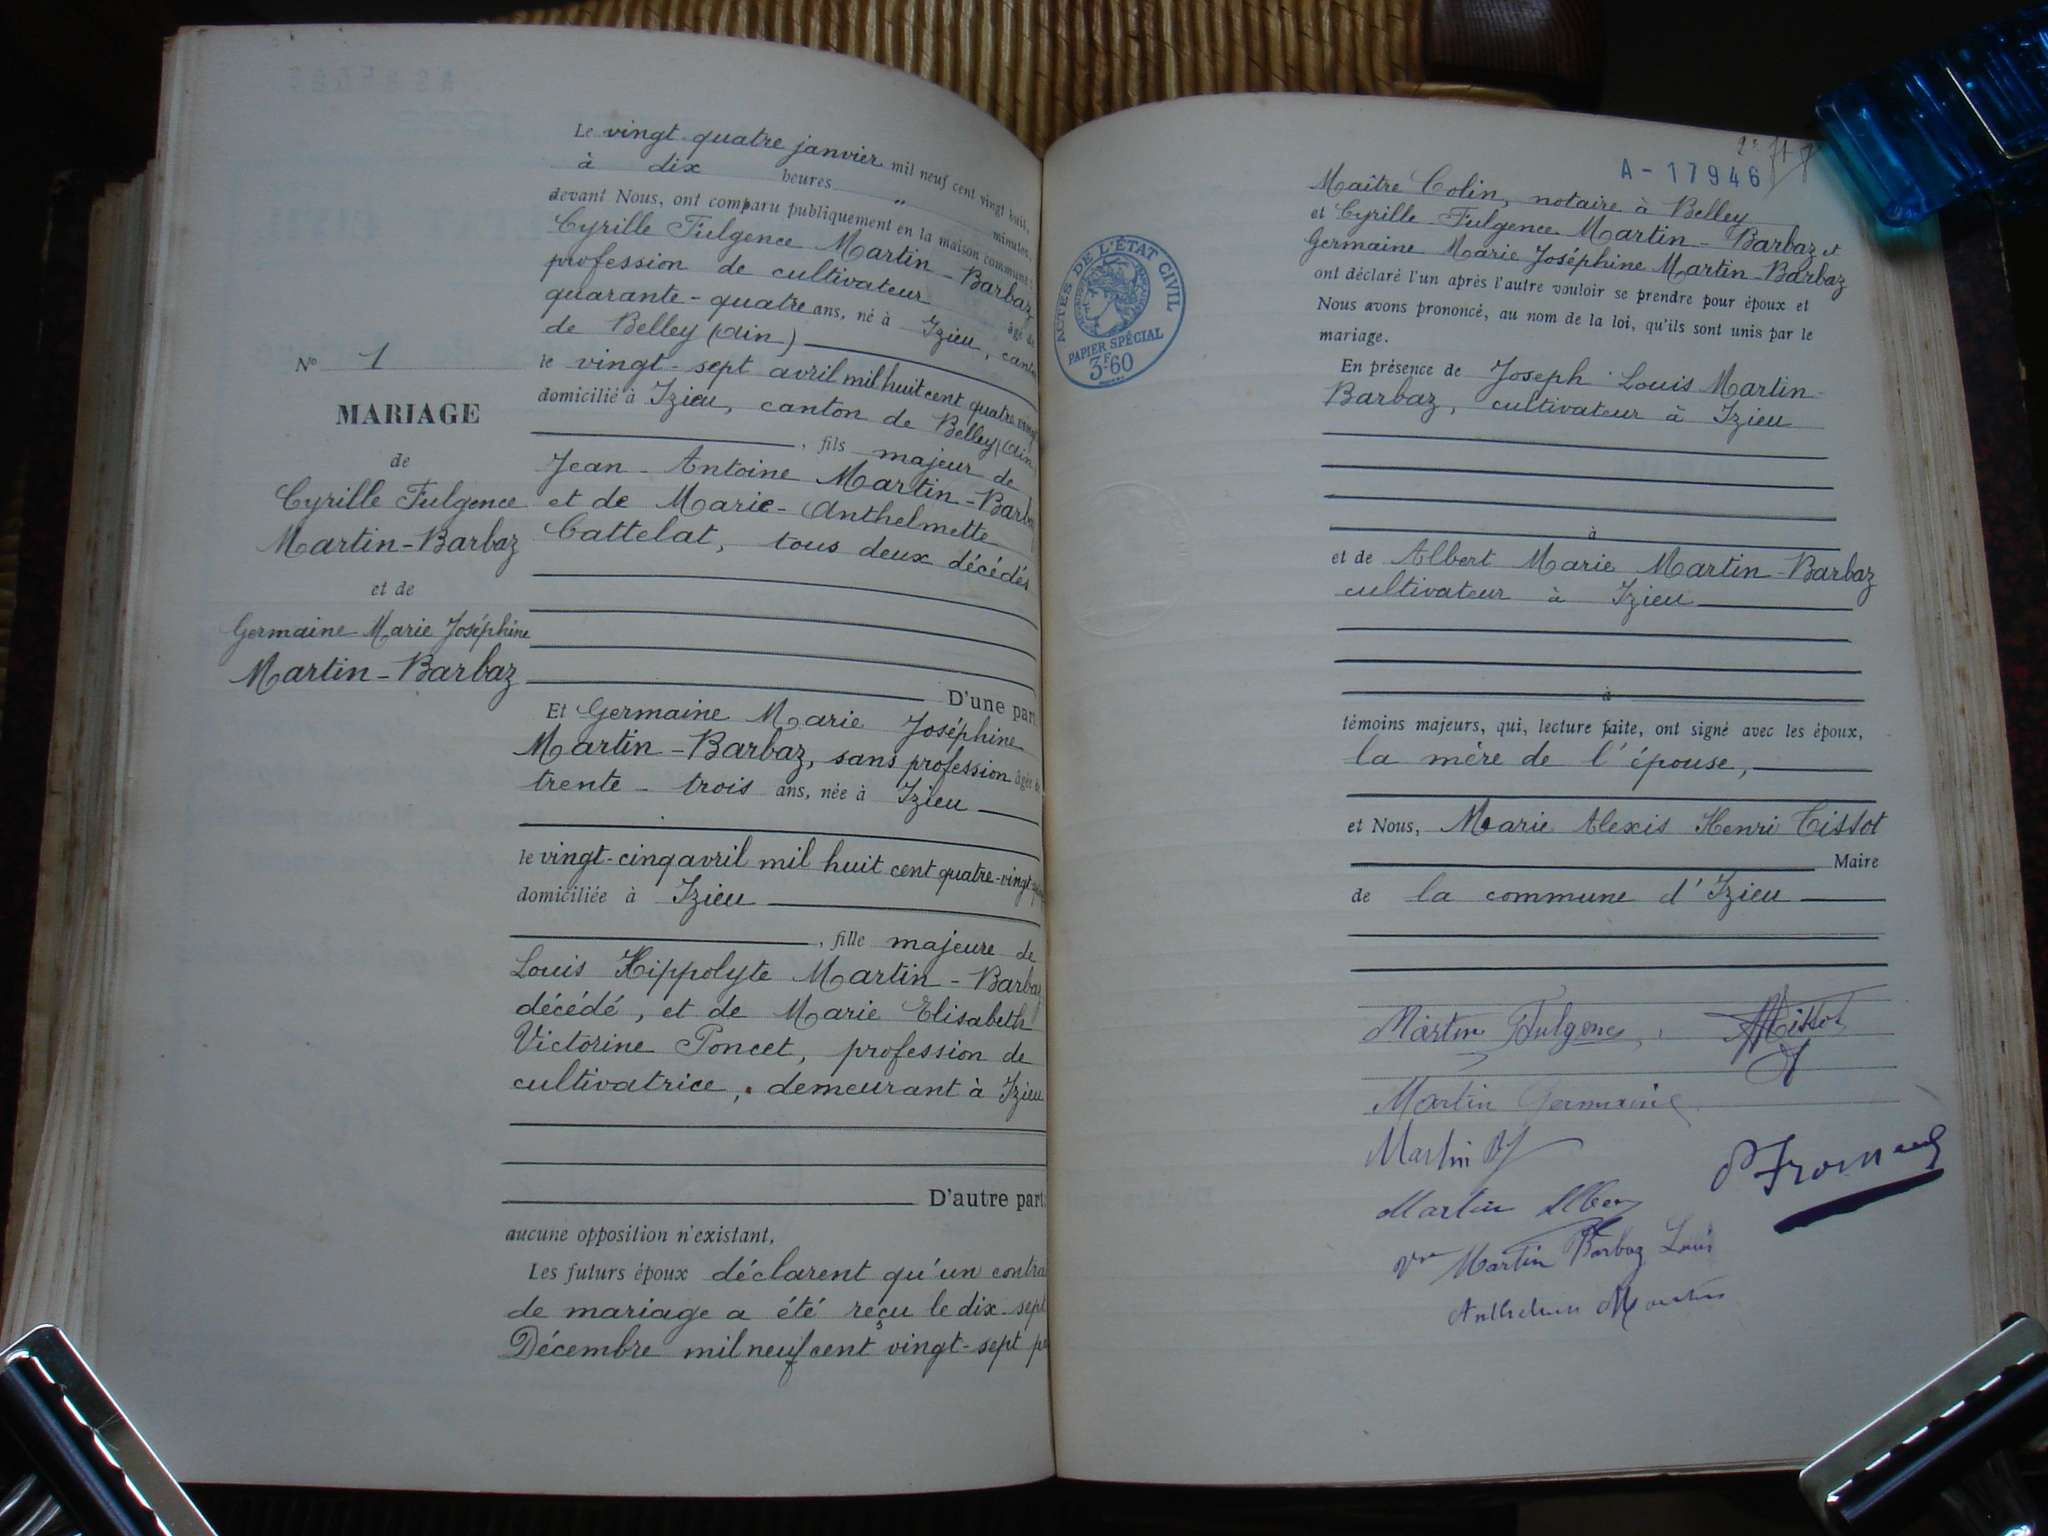 Le vingt-quatre janvier mil neuf cent vingt huit,
à dix heures " minutes,
devant Nous, ont comparu publiquement en la maison commune:
Cyrille Fulgence Martin-Barbaz
profession de cultivateur âgé de
quarante-quatre ans, né à Izieu, canton
de Belley (Ain)
le vingt-sept avril mil huit cent quatre-vingt
domicilié à Izieu, canton de Belley (Ain)
, fils majeur de
Jean-Antoine Martin-Barbaz
et de Marie-Anthelmette
Cattelat, tous deux décédés
D'une part,
Et Germaine Marie Joséphine
Martin-Barbaz, sans profession âgée de
trente-trois ans, née à Izieu
le vingt-cinq avril mil huit cent quatre-vingt
domiciliée à Izieu
, fille majeure de
Louis Hippolyte Martin-Barbaz
décédé, et de Marie Elisabeth
Victorine Poncet, profession de
cultivatrice, demeurant à Izieu
D'autre part:
aucune opposition n'existant,
Les futurs époux déclarent qu'un contra
de mariage a été reçu le dix-sept
Décembre mil neuf cent vingt-sept
N° 1
MARIAGE
de
Cyrille Fulgence
Martin-Barbaz
et de
Germaine Marie Joséphine
Martin-Barbaz
A-17946
Maître Colin, notaire à Belley
et Cyrille Fulgence Martin-Barbaz et
Germaine Marie Joséphine Martin-Barbaz
ont déclaré l'un après l'autre vouloir se prendre pour époux et
Nous avons prononcé, au nom de la loi, qu'ils sont unis par le
mariage.
En présence de Joseph Louis Martin-
Barbaz, cultivateur à Izieu
à
et de Albert Marie Martin-Barbaz
cultivateur à Izieu
à
témoins majeurs, qui, lecture faite, ont signé avec les époux,
la mère de l'épouse,
et Nous, Marie Alexis Henri Tissot
Maire
de la commune d'Izieu
Martin Fulgence Tissot
Martin Germaine
Martin
Martin Albert
Vve Martin Barbaz Louis
ACTES DE L'ÉTAT CIVIL
PAPIER SPÉCIAL
3F60